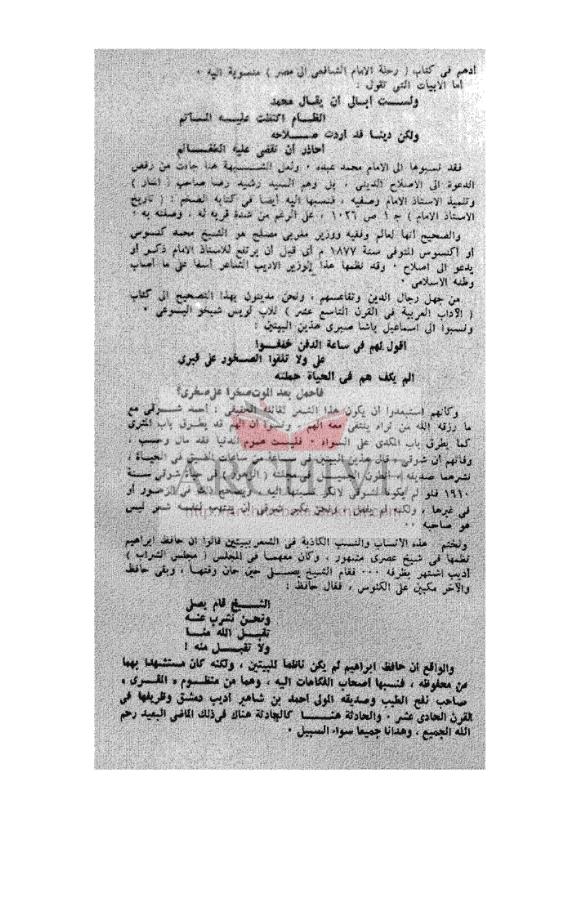 أدهم في كتاب ( رحلة الامام الشافعي الى مصر ) منسوبة اليه ٠
أما الأبيات التي تقول :
ولست أبالي أن يقال محمد
أبل أم اكتظت عليه المآتم
ولكن دينا قد أردت صلاحه
أحاذر أن تقضى عليه العمائم
فقد نسبوها الى الامام محمد عبده ٠ ولعل الشبهة هنا جاءت من رفض
الدعوة الى الاصلاح الديني ، بل وهم السيد رشيد رضا صاحب ( المنار )
وتلميذ الاستاذ الامام وصفيه ، فنسبها اليه أيضا في كتابه الضخم : ( تاريخ
الاستاذ الامام ) ج ١ ص ١٠٢٦ ، على الرغم من شدة قربه له ، وصلته به ٠
والصحيح أنها لعالم وفقيه ووزير مغربي مصلح هو الشيخ محمد كنسوس
أو اكنسوس المتوفى سنة ١٨٧٧ م أي قبل أن يرتفع للاستاذ الامام ذكر أو
يدعو الى اصلاح ٠ وقد نظمها هذا الوزير الاديب الشاعر أسفا على ما أصاب
وطنه الاسلامى ٠
من جهل رجال الدين وتقاعسهم ، ونحن مدينون بهذا التصحيح الى كتاب
( الآداب العربية في القرن التاسع عشر ) للاب لويس شيخو اليسوعى ٠
ونسبوا الى اسماعيل باشا صبرى هذين البيتين :
أقول لهم في ساعة الدفن خففوا
على ولا تلقوا الصخور على قبرى
ألم يكف هم في الحياة حملته
فأحمل بعد الموت صخرا على صخرى؟
وكأنهم استبعدوا أن يكون هذا الشعر لقائله الحقيقى ، أحمد شوقى مع
ما رزقه الله من ثراء ينتفى معه الهم ٠ ونسوا أن الهم قد يطرق باب المثرى
كما يطرق باب المكدى على السواء ٠ فليست هموم الدنيا فقد مال وحسب ،
وفاتهم أن شوقى قال هذين البيتين في ساعة من ساعات الضيق في الحياة ،
نشرهما صديقه أنطون الجميل في مجلة ( الزهور ) في حياة شوقى سنة
١٩١٠ فلو لم يكونا لشوقى لأنكر نسبتهما اليه ، ويصحح ذلك في الزهور أو
في غيرها ، ولكنه لم يفعل ، ونحن نكبر شوقى أن ينتهب لنفسه شعر ليس
هو صاحبه ٠٠
ARCHIVE
ونختم هذه الانساب والنسب الكاذبة في الشعر ببيتين قالوا ان حافظ ابراهيم
نظمها في شيخ عصرى مشهور ، وكان معهما في المجلس ( مجلس الشراب )
أديب اشتهر بظرفه ٠٠٠ فقام الشيخ يصلى حين حان وقتها ، وبقى حافظ
والآخر مكبين على الكئوس ، فقال حافظ :
الشيخ قام يصلى
ونحن نشرب عنه
تقبل الله منا
ولا تقبل منه !
والواقع أن حافظ ابراهيم لم يكن ناظما للبيتين ، ولكنه كان مستشهدا بهما
من محفوظه ، فنسبها أصحاب الفكاهات اليه ، وهما من منظوم « المقرى »
صاحب نفح الطيب وصديقه المولى أحمد بن شاهين أديب دمشق وظريفها في
القرن الحادى عشر ٠ والحادثة هنا كالحادثة هناك في ذلك الماضى البعيد رحم
الله الجميع ، وهدانا جميعا سواء السبيل ٠